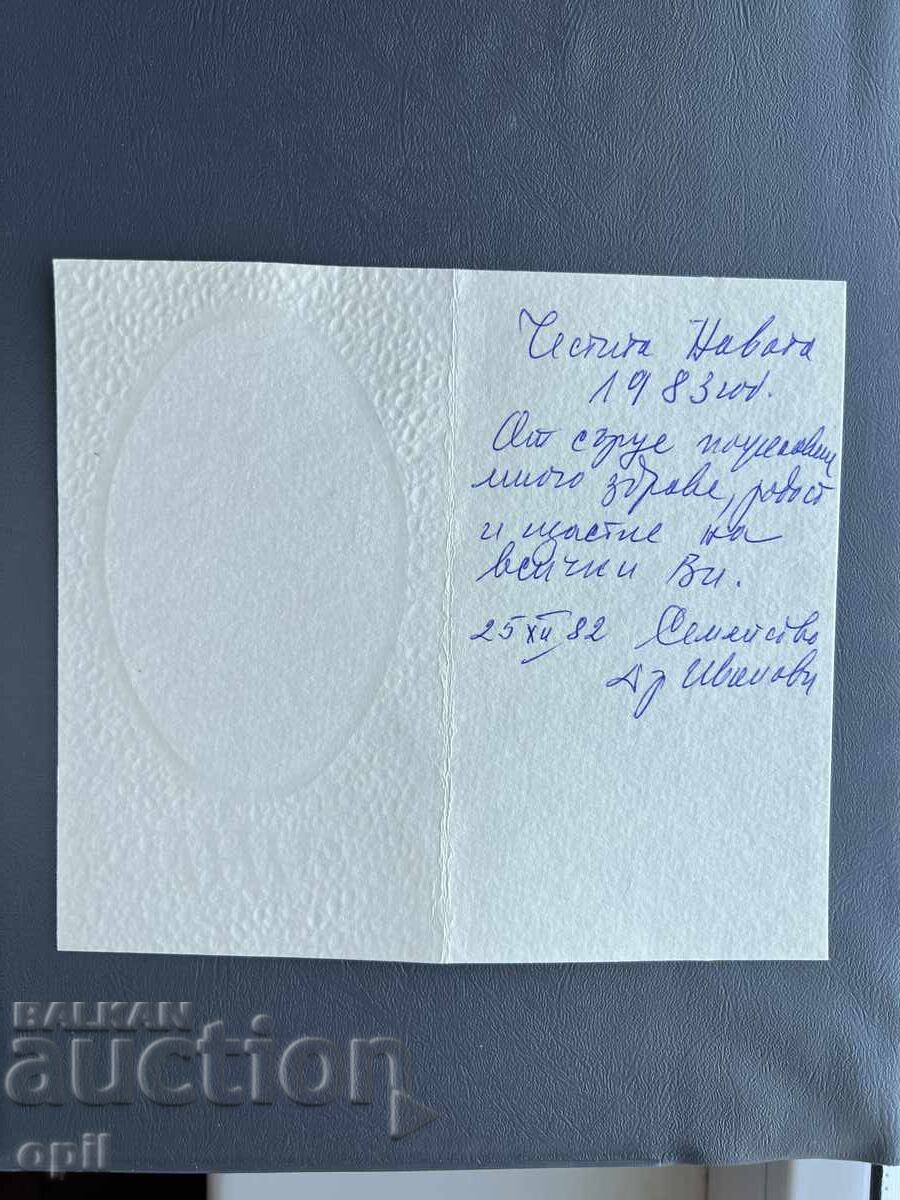 Честита Новата
1983 год.
От сърце пожелавам
много здраве, радост
и щастие на
всички Ви.
25 XII 82 Семейство
Др Иванови
BALKAN
auction
opil